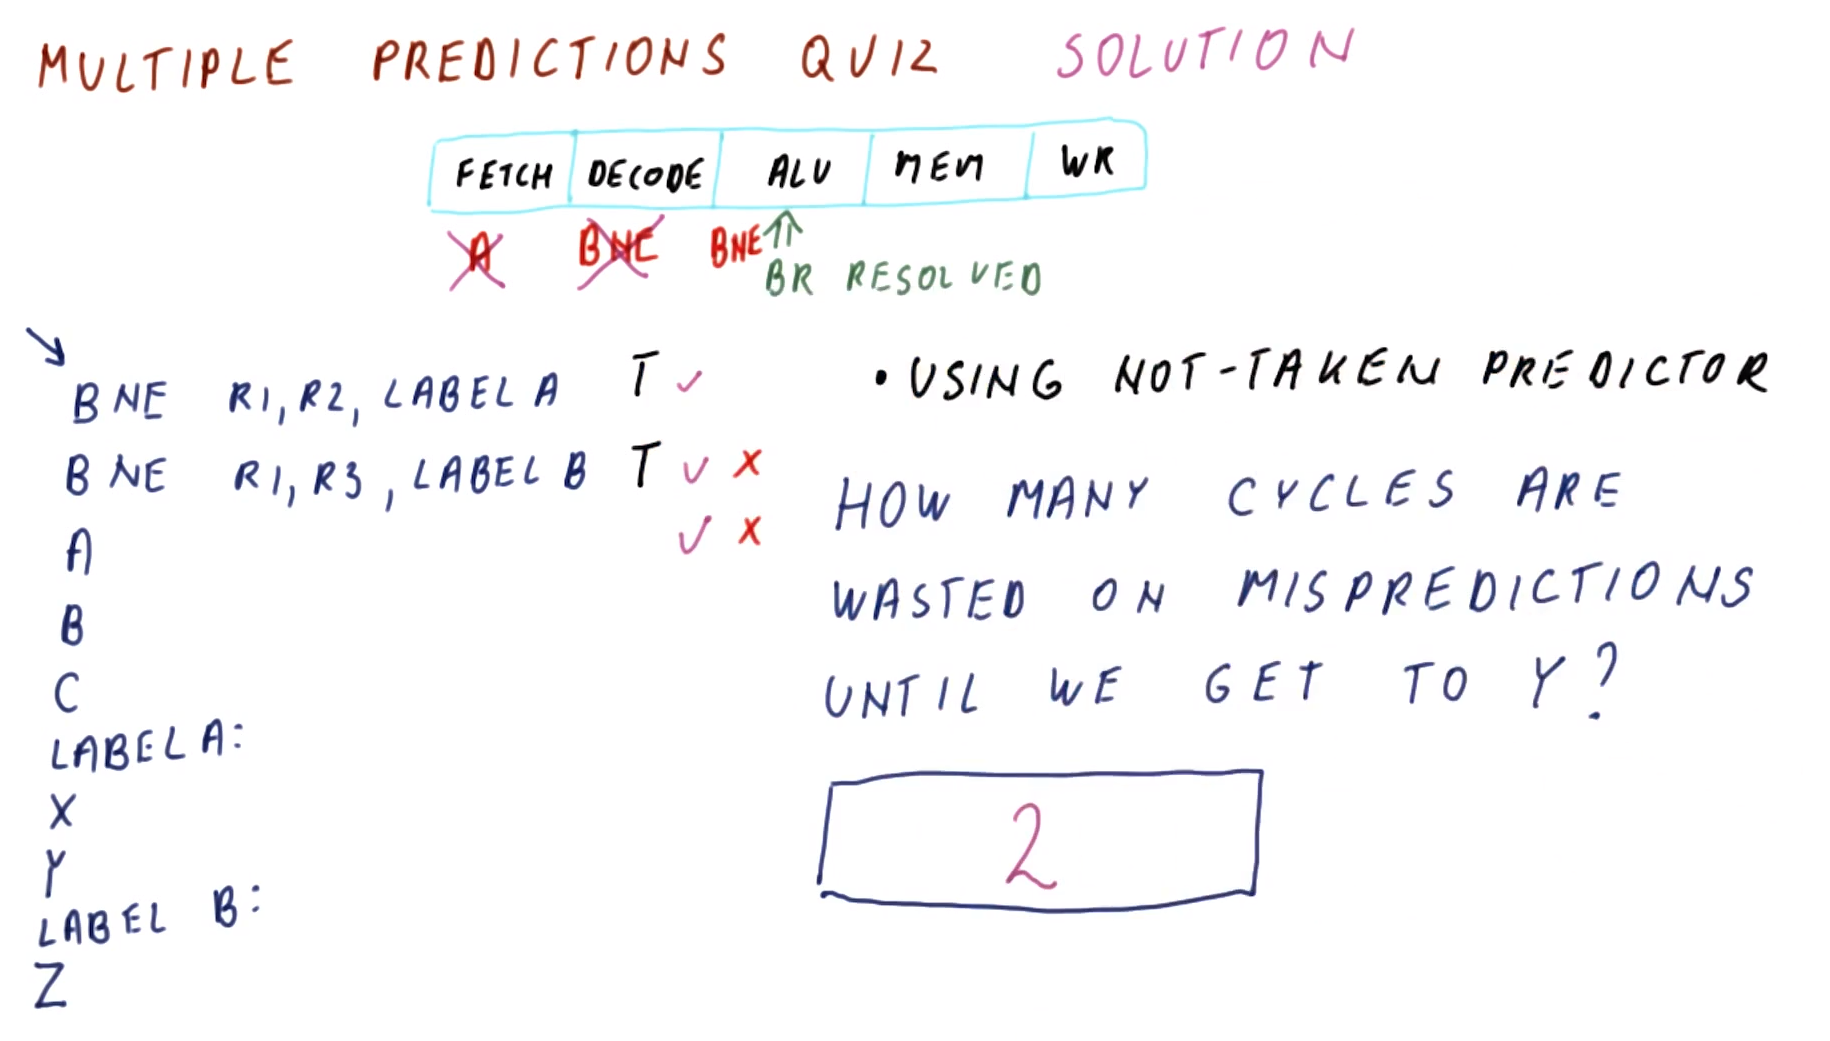 MULTIPLE PREDICTIONS QUIZ SOLUTION
FETCH DECODE ALU MEM WR
A BNE BNE
BR RESOLVED
BNE R1, R2, LABEL A T ✓
BNE R1, R3, LABEL B T ✓ X
A ✓ X
B
C
LABEL A:
X
Y
LABEL B:
Z
• USING NOT-TAKEN PREDICTOR
HOW MANY CYCLES ARE
WASTED ON MISPREDICTIONS
UNTIL WE GET TO Y?
2